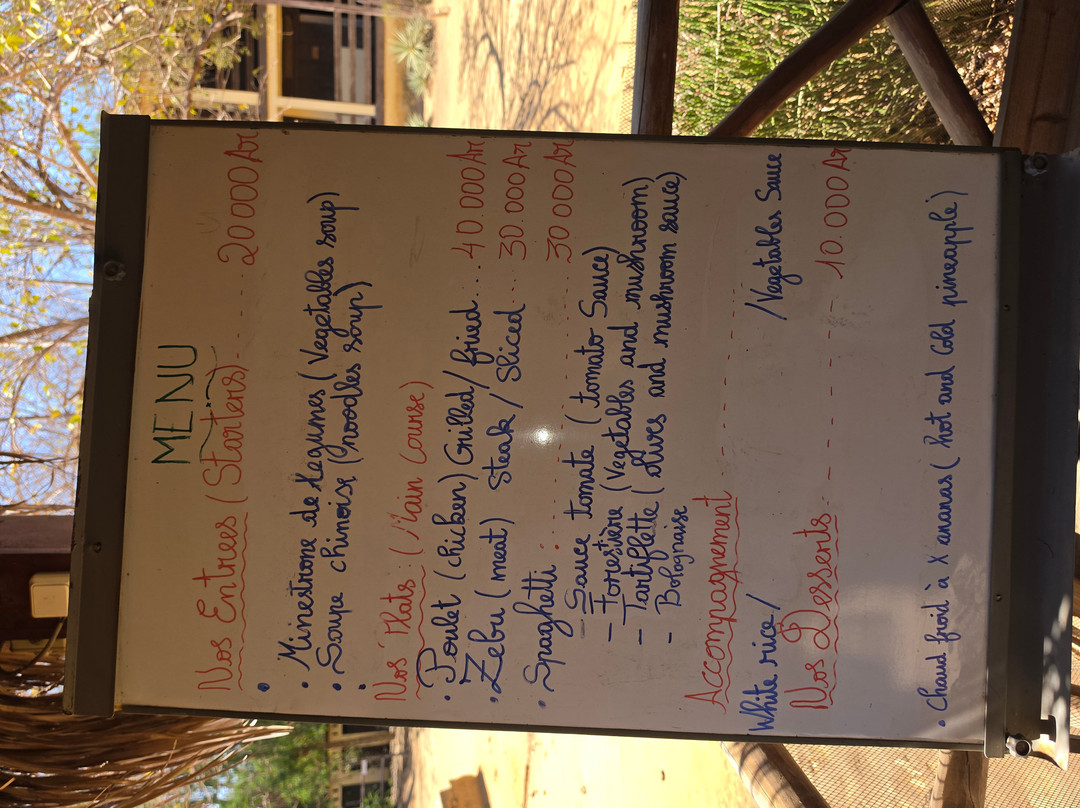 MENU
Nos Entrees (Starters)..... 20000Ar
•
• Minestrone de légumes (Vegetables soup)
• Soupe chinoise (noodles soup)
•
Nos Plats : (Main Course)
• Poulet (chicken) Grilled/fried... 40.000Ar
• Zebu (meat) steak / Sliced ... 30.000Ar
• Spaghetti : ............ 30000Ar
- Sauce tomate (tomato Sauce)
- Forestière (Vegetables and mushroom)
- Tartiflette (olives and mushroom sauce)
- Bolognaise
Accompagnement ------------
White rice / /Vegetables Sauce
Nos Desserts - - - - - - - 10.000Ar
• Chaud froid à x ananas (hot and cold pineapple)